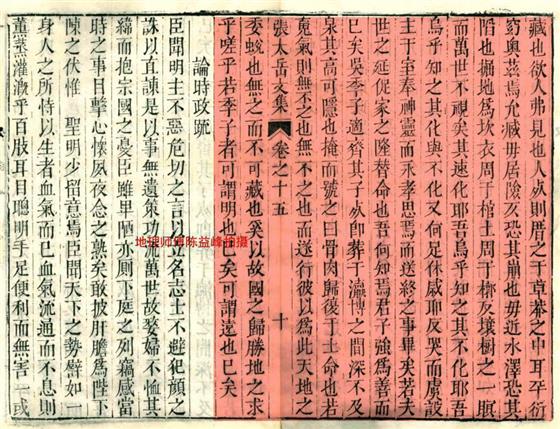 藏也欲人弗見也人死厝之于草莽之中耳平衍
窮奧蔑焉允藏毋居險反恐其崩也毋近水澤恐其
陷也掘地爲坎衣周于棺土周于槨反壤樹之一瞑
而萬世不視矣其速化耶吾烏乎知之其不化耶吾
烏乎知之其化與不化又何足休戚耶反哭而虞設
主于室奉神靈而永孝思焉而送終之事畢矣若夫
世之延促家之隆替命也吾何知焉君子強爲善而
已矣吳季子適齊其子死卽葬于瀛博之間深不及
泉其高可隱也掩而號之曰骨肉歸復于土命也若
魂氣則無不之也無不之也而遂行彼以爲此天地之
張太岳文集 卷之十五 十
委蛻也無之而不可藏也奚以故國之歸勝地之求
乎嗟乎若季子者可謂明也已矣可謂達也已矣
論時政疏
臣聞明主不惡危切之言以立名志士不避犯顏之
誅以直諫是以事無遺策功流萬世故嫠婦不恤其
緯而抱宗國之憂臣雖卑陋亦厠下庭之列竊感當
時之事目擊心懷夙夜念之熟矣敢披肝膽爲陛下
陳之伏惟 聖明少留意焉臣聞天下之勢譬如一
身人之所恃以生者血氣而已血氣流通而不息則
薰蒸灌溉乎百肢耳目聰明手足便利而無害一或
地理师傅陈益峰拍摄